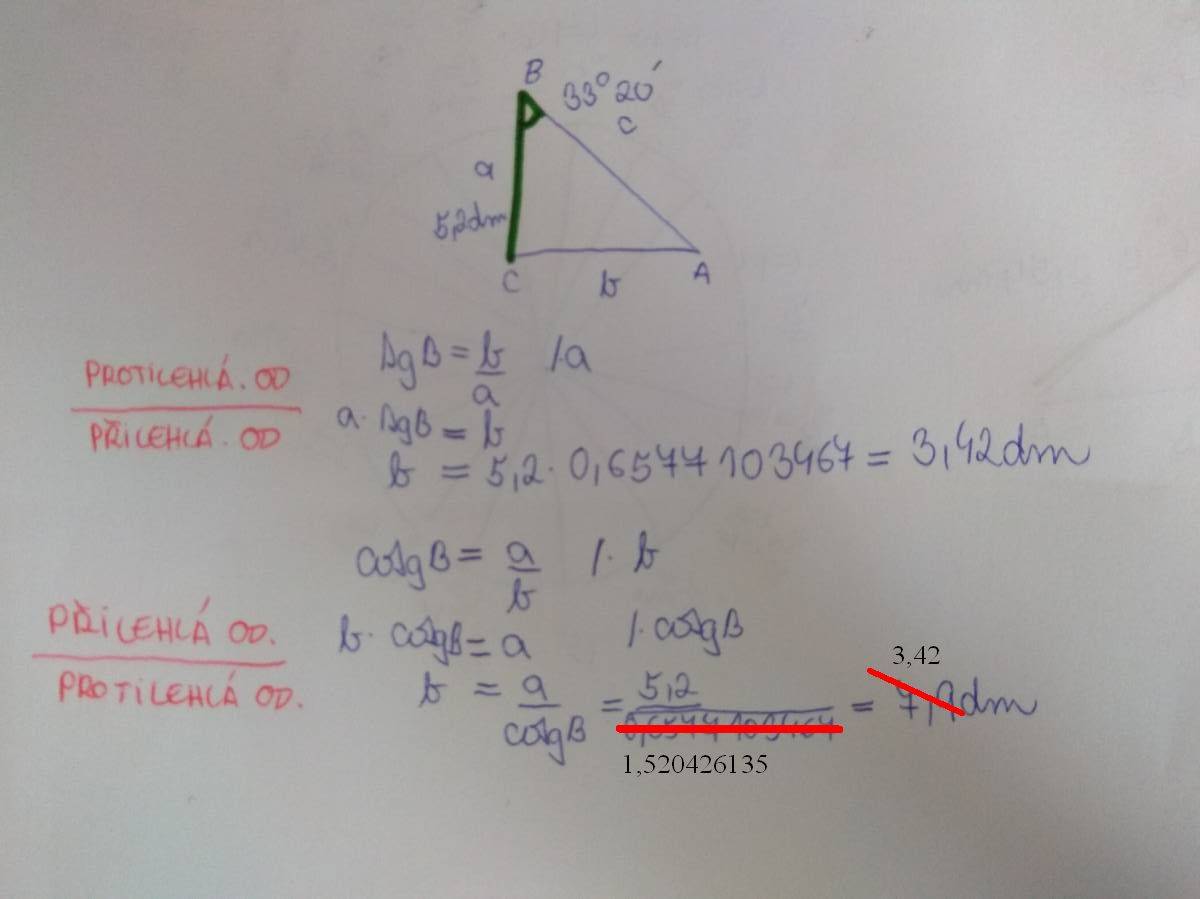 B
33° 20'
c
a
5,2dm
C
b
A
tgB = b/a /.a
PROTILEHLÁ. OD
PŘILEHLÁ. OD
a. tgB = b
b = 5,2. 0,6577103467 = 3,42dm
cotgB = a/b /. b
PŘILEHLÁ OD.
PROTILEHLÁ OD.
b. cotgB = a /. cotgB
3,42
b = a/cotgB = 5,2/0,6577103467 = 7,9dm
1,520426135